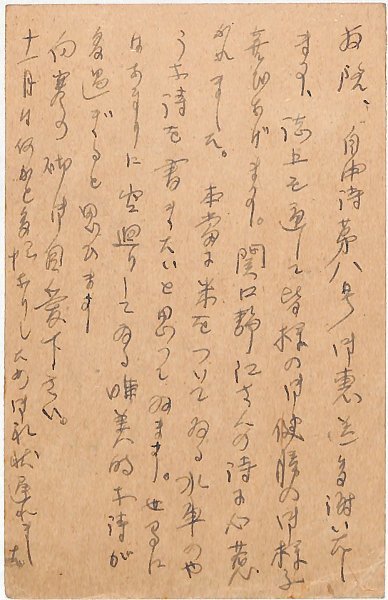 拝啓、自由詩第八号御恵送多謝いたし
ます、誌上を通して皆様の御健勝の御様子
喜びあげます。関口静江さんの詩に心惹
かれました。本当に米をついてゐる水車のや
うな詩を書きたいと思つてゐます。世間に
はあまりに空廻りしてゐる唯美的な詩が
多過ぎると思ひます
向寒の砌御自愛下さい。
十一月は何かと多忙ありしため御礼状遅れまし